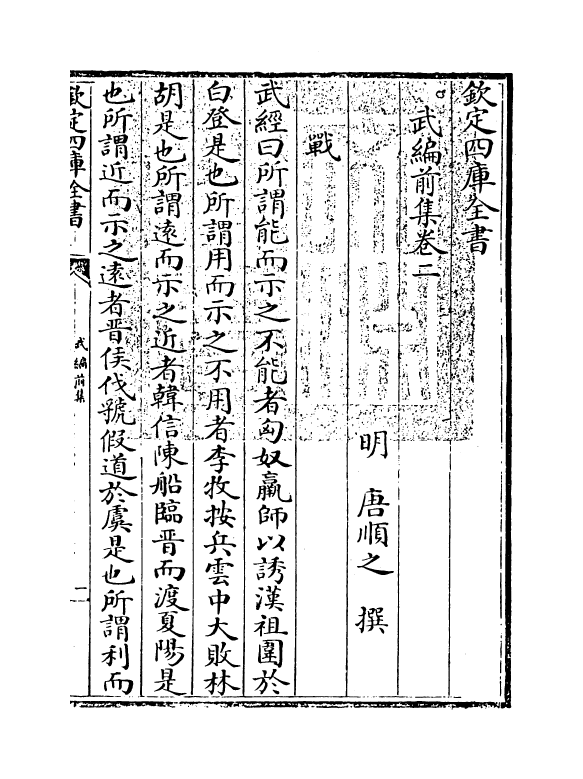 欽定四庫全書
武編前集卷二
明　唐順之　撰
戰
武經曰所謂能而示之不能者匈奴羸師以誘漢祖圍於
白登是也所謂用而示之不用者李牧按兵雲中大敗林
胡是也所謂遠而示之近者韓信陳船臨晉而渡夏陽是
也所謂近而示之遠者晉侯伐虢假道於虞是也所謂利而
欽定四庫全書
武編前集
二